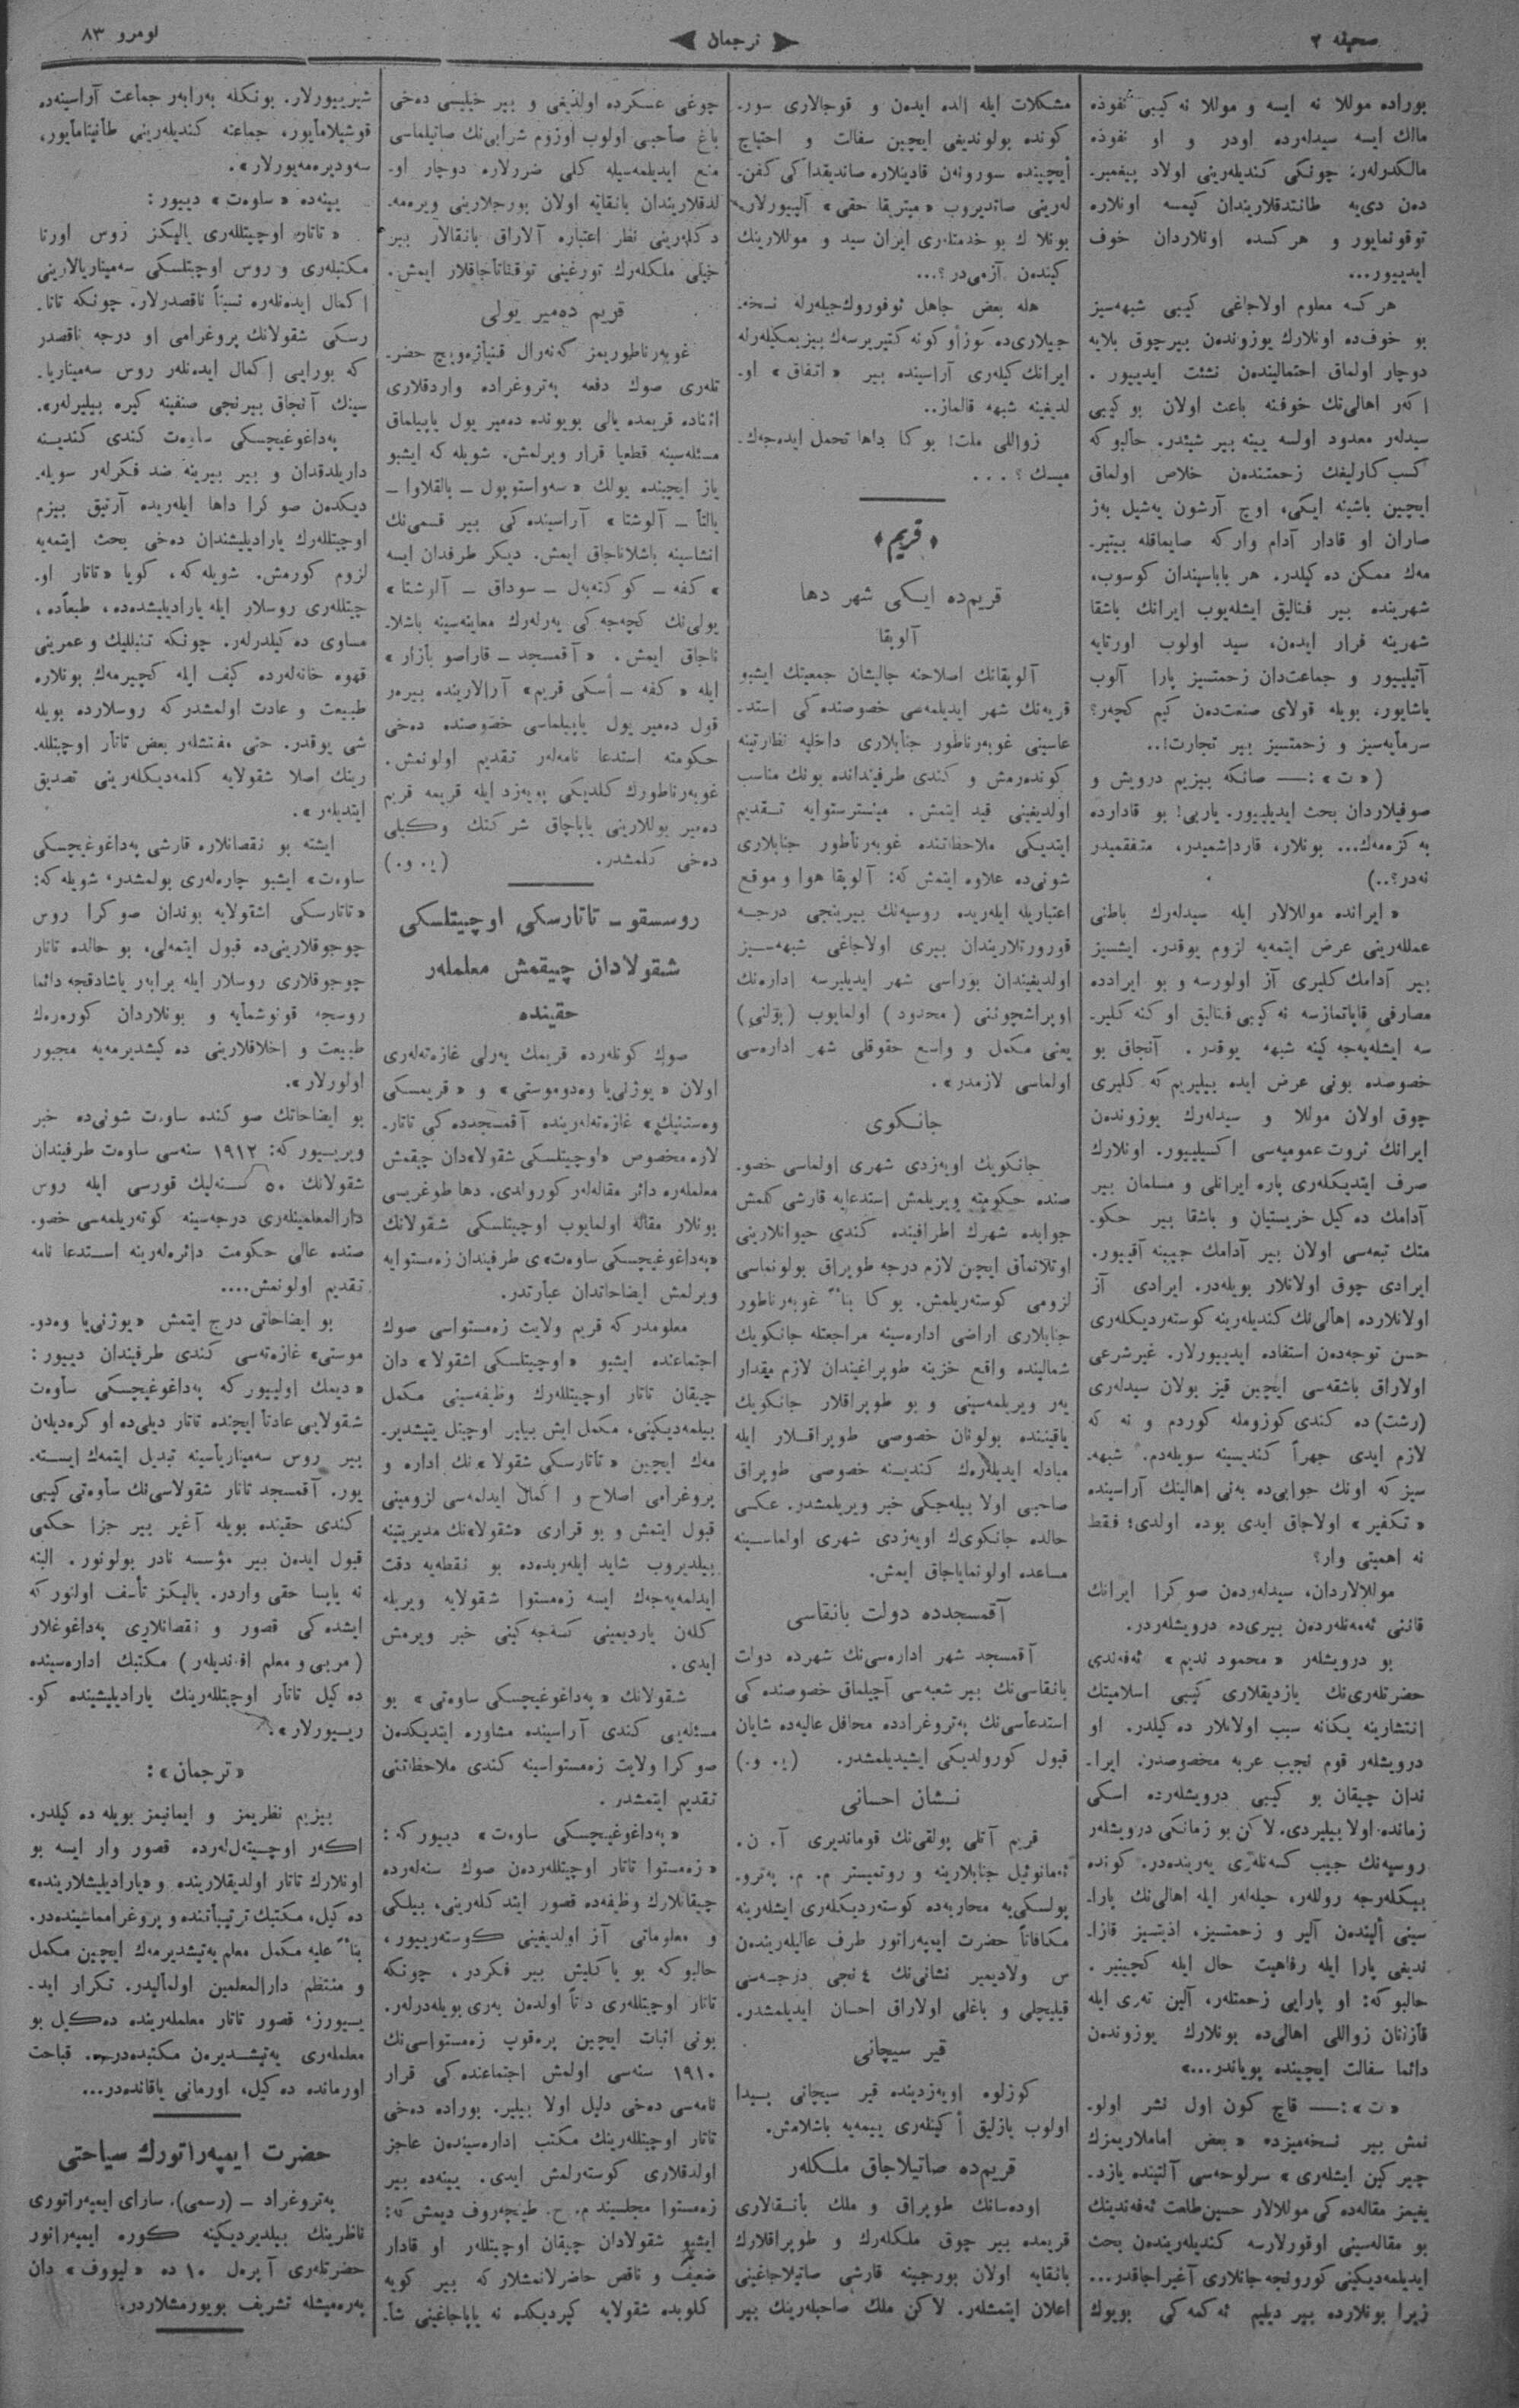 صحیفه ۲
ترجمان
نومرو ۸۳
بوراده موللا نه ایسه و موللا نه کیبی نفوذه
مالك ایسه سیدلەرده اودر و او نفوذه
مالکدرلەر: چونکی کندیلەرینی اولاد پیغمبر-
دەن دی‌یە طانتدقلاریندان کیمسه اونلاره
توقونمایور و هر کسده اونلاردان خوف
ایدییور...
هر کسه معلوم اولاجاغی کیبی شبهەسیز
بو خوف‌ده اونلارك یوزوندەن بیرچوق بلایه
دوچار اولماق احتمالیندەن نشئت ایدییور.
اکەر اهالی‌نك خوفنه باعث اولان بو کیبی
سیدلەر معدود اولسه یینه بیر شیئدر. حالبو که
کسب کارلیغك زحمتندەن خلاص اولماق
ایچین باشینه ایکی، اوچ آرشون یەشیل بەز
صاران او قادار آدام وارکه صایماقله بیتیر-
مەك ممکن دەکیلدر. هر باباسیندان کوسوب،
شهرینده بیر فنالیق ایشلەیوب ایرانك باشقا
شهرینه فرار ایدەن، سید اولوب اورتایه
آتیلییور و جماعت‌دان زحمتسیز پارا آلوب
یاشایور، بویله قولای صنعت‌دەن کیم کچەر؟
سرمایەسیز و زحمتسیز بیر تجارت!..
( «ت»: — صانکه بیزیم درویش و
صوفیلاردان بحث ایدیلییور. یاربی! بو قاداردە
بەکزەمەك... بونلار، قارداشمیدر، متفقمیدر
نەدر؟..)
« ایرانده موللالار ایله سیدلەرك باطنی
عمللەرینی عرض ایتمەیه لزوم یوقدر. ایشسیز
بیر آدامك کلیری آز اولورسه و بو ایرادده
مصارفی قاپاتمازسه نه کیبی فنالیق اوکنه کلیر-
سه ایشلەیەجەکینه شبهه یوقدر. آنجاق بو
خصوصده بونی عرض ایده بیلیریم که کلیری
چوق اولان موللا و سیدلەرك یوزوندەن
ایرانك ثروت عمومیەسی اکسیلییور. اونلارك
صرف ایتدیکلەری پاره ایرانلی و مسلمان بیر
آدامك دەکیل خریستیان و باشقا بیر حکو-
متك تبعەسی اولان بیر آدامك جیبینه آقییور.
ایرادی چوق اولانلار بویلەدر. ایرادی آز
اولانلارده اهالی‌نك کندیلەرینه کوستەردیکلەری
حسن توجەدەن استفاده ایدییورلار. غیرشرعی
اولاراق باشقەسی ایچین قیز بولان سیدلەری
(رشت) ده کندی کوزومله کوردم و نه که
لازم ایدی جهراً کندیسینه سویلەدم. شبهه-
سیز که اونك جوابی‌ده یەنی اهالینك آراسینده
« تکفیر » اولاجاق ایدی بوده اولدی؛ فقط
نه اهمیتی وار؟
موللالاردان، سیدلەردەن صوکرا ایرانك
قانی ئەمەنلەردەن بیری‌ده درویشلەردر.
بو درویشلەر « محمود ندیم » ئەفەندی
حضرتلەری‌نك یازدیقلاری کیبی اسلامیتك
انتشارینه یکانه سبب اولانلار دەکیلدر. او
درویشلەر قوم نجیب عربه مخصوصدر. ایرا-
ندان چیقان بو کیبی درویشلەرده اسکی
زمانده اولا بیلیردی. لاکن بو زمانکی درویشلەر
روسیه‌نك جیب کسەنلەری یەرینده‌در. کونده
بیکلەرجه روللەر، حیلەلەر ایله اهالی‌نك پارا-
سینی ألیندەن آلیر و زحمتسیز، اذیتسیز قازا-
ندیغی پارا ایله رفاهیت حال ایله کچینیر.
حالبوکه: او پارایی زحمتلەر، آلین تەری ایله
قازانان زواللی اهالی‌ده بونلارك یوزوندەن
دائما سفالت ایچینده بویاندر...»
«ت»: — قاچ کون اول نشر اولو-
نمش بیر نسخەمیزده « بعض اماملاریمزك
چیرکین ایشلەری » سرلوحەسی آلتینده یازد-
یغیمز مقالەده کی موللالار حسین‌طلعت ئەفەندینك
بو مقالەسینی اوقورلارسه کندیلەریندەن بحث
ایدیلمەدیکینی کورونجه جانلاری آغیراجاقدر...
زیرا بونلارده بیر دیلیم ئەکمەکی بویوك
مشکلات ایله ألده ایدەن و قوجالاری سور-
کونده بولوندیغی ایچین سفالت و احتیاج
أیچینده سورونەن قادینلاره صاندیقداکی کفن-
لەرینی صاتدیروب « میتریقا حقی » آلییورلار.
بونلا ك بو خدمتلەری ایران سید و موللارینك
کیندەن آزمی‌در؟...
هله بعض جاهل ئوفوروك‌جیلەرله نسخه-
جیلاری‌ده کوزأوکونه کتیریرسەك بیزیمکیلەرله
ایرانك کیلەری آراسینده بیر « اتفاق » او-
لدیغینه شبهه قالماز..
زواللی ملت! بوکا داها تحمل ایدەجەك-
میسك؟...
﴿ قریم ﴾
قریم‌ده ایکی شهر دها
آلوپقا
آلوپقانك اصلاحنه چالیشان جمعیتك ایشبو
قریه‌نك شهر ایدیلمەسی خصوصندەکی استد-
عاسینی غوبەرناطور جنابلاری داخلیه نظارتینه
کوندەرمش و کندی طرفیندانده بونك مناسب
اولدیغینی قید ایتمش. مینسترستوایه تقدیم
ایتدیکی ملاحظاتنده غوبەرناطور جنابلاری
شونی‌ده علاوه ایتمش که: آلوپقا هوا و موقع
اعتباریله ایلەریده روسیه‌نك بیرینجی درجه
قورورتلاریندان بیری اولاجاغی شبهەسیز
اولدیغیندان بوراسی شهر ایدیلیرسه ادارەنك
اوپراشچوننی (محدود) اولمایوب (پولنی)
یعنی مکمل و واسع حقوقلی شهر ادارەسی
اولماسی لازمدر».
جانکوی
جانکویك اویەزدی شهری اولماسی خصو-
صنده حکومته ویریلمش إستدعایه قارشی کلمش
جوابده شهرك اطرافینده کندی حیوانلارینی
اوتلاتماق ایچین لازم درجه طوپراق بولونماسی
لزومی کوستەریلمش. بوکا بناءً غوبەرناطور
جنابلاری اراضی ادارەسینه مراجعتله جانکویك
شمالینده واقع خزینه طوپراغیندان لازم مقدار
یەر ویریلمەسینی و بو طوپراقلار جانکویك
یاقینینده بولونان خصوصی طوپراقلار ایله
مبادله ایدیلەرەك کندیسنه خصوصی طوپراق
صاحبی اولا بیلەجکی خبر ویریلمشدر. عکسی
حالده جانکوی‌ك اویەزدی شهری اولماسینه
مساعده اولونمایاجاق ایمش.
آقمسجدده دولت بانقاسی
آقمسجد شهر ادارەسی‌نك شهرده دولت
بانقاسی‌نك بیر شعبەسی آچیلماق خصوصندەکی
استدعاسی‌نك پەتروغرادده محافل عالیه‌ده شایان
قبول کورولدیکی ایشیدیلمشدر. (ی. و.)
نشان احسانی
قریم آتلی پولقی‌نك قوماندیری آ. ن.
ئەمانوئیل جنابلارینه و روتمیستر م. م. پەترو-
پولسکی‌یه محاربەده کوستەردیکلەری ایشلەرینه
مکافاتاً حضرت ایمپەراتور طرف عالیلەریندەن
س ولادیمیر نشانی‌نك ٤ نجی درجەسی
قیلیچلی و باغلی اولاراق احسان ایدیلمشدر.
قیر سیچانی
کوزلوه اویەزدینده قیر سیچانی پیدا
اولوب یازلیق أکینلەری ییمەیه باشلامش.
قریم‌ده صاتیلاجاق ملکلەر
اودەسانك طوپراق و ملك بانقالاری
قریمده بیر چوق ملکلەرك و طوپراقلارك
بانقایه اولان بورجینه قارشی صاتیلاجاغینی
اعلان ایتمشلەر. لاکن ملك صاحبلەرینك بیر
چوغی عسکرده اولدیغی و بیر خیلیسی دەخی
باغ صاحبی اولوب اوزوم شرابی‌نك صاتیلماسی
منع ایدیلمەسیله کلی ضررلاره دوچار او-
لدقلاریندان بانقایه اولان بورجلارینی ویرەمه-
دکلەرینی نظر اعتباره آلاراق بانقالار بیر
خیلی ملکلەرك تورغینی توقتاتاجاقلار ایمش.
قریم دەمیر یولی
غوبەرناطوریمز کەنەرال قنیاژەویچ حضر-
تلەری صوك دفعه پەتروغراده واردقلاری
اثناده قریمده یالی بویونده دەمیر یول یاپیلماق
مسئلەسینه قطعیا قرار ویرلمش. شویله که ایشبو
یاز ایچینده یولك «سەواستوپول — بالقلاوا —
یالتا — آلوشتا» آراسیندەکی بیر قسمی‌نك
انشاسینه باشلاناجاق ایمش. دیکر طرفدان ایسه
« کفه — کوکتەبەل — سوداق — آلوشتا »
یولی‌نك کچەجەکی یەرلەرك معاینەسینه باشلا-
ناجاق ایمش. « آقمسجد — قاراصو بازار »
ایله « کفه — أسکی قریم » آرالارینده بیرەر
قول دەمیر یول یاپیلماسی خصوصنده دەخی
حکومته استدعا نامەلەر تقدیم اولونمش.
غوبەرناطورك کلدیکی پویەزد ایله قریمه قریم
دەمیر یوللارینی یاپاجاق شرکتك وکیلی
دەخی کلمشدر. (ی. و.)
روسسقو — تاتارسکی اوچیتلسکی
شقولادان چیقمش معلملەر
حقینده
صوك کونلەرده قریمك یەرلی غازەتەلەری
اولان « یوژنی‌یا وەدوموستی » و « قریمسکی
وەستنیك» غازەتەلەرینده آقمسجددەکی تاتار-
لاره مخصوص «اوچیتلسکی شقولا»دان چیقمش
معلملەره دائر مقالەلەر کورولدی. دها طوغریسی
بونلار مقاله اولمایوب اوچیتلسکی شقولانك
«پەداغوغیچسکی ساوەت»ی طرفیندان زەمستوایه
ویرلمش ایضاحاتدان عبارتدر.
معلومدر که قریم ولایت زەمستواسی صوك
اجتماعنده ایشبو « اوچیتلسکی اشقولا » دان
چیقان تاتار اوچیتللەرك وظیفەسینی مکمل
بیلمەدیکینی، مکمل ایش بیلیر اوچیتل یتیشدیر-
مەك ایچین « تاتارسکی شقولا »نك اداره و
پروغرامی اصلاح و اکمال ایدلمەسی لزومینی
قبول ایتمش و بو قراری «شقولا»نك مدیریتینه
بیلدیروب شاید ایلەریدەده بو نقطەیه دقت
ایدلمەیەجەك ایسه زەمستوا شقولایه ویریله
کلەن یاردیمینی کسەجەکینی خبر ویرمش
ایدی.
شقولانك « پەداغوغیچسکی ساوەتی » بو
مسئلەیی کندی آراسینده مشاوره ایتدیکدەن
صوکرا ولایت زەمستواسینه کندی ملاحظاتنی
تقدیم ایتمشدر.
« پەداغوغیچسکی ساوەت » دییور که:
« زەمستوا تاتار اوچیتللەردەن صوك سنەلەرده
چیقانلارك وظیفەده قصور ایتدکلەرینی، بیلکی
و معلوماتی آز اولدیغینی کوستەرییور،
حالبوکه بو یاکلیش بیر فکردر. چونکه
تاتار اوچیتللەری دائماً اولدەن بەری بویلەدرلەر.
بونی اثبات ایچین پرەقوپ زەمستواسی‌نك
۱۹۱۰ سنەسی اولمش اجتماعندەکی قرار
نامەسی دەخی دلیل اولا بیلیر. بوراده دەخی
تاتار اوچیتللەرینك مکتب إدارەسیندەن عاجز
اولدقلاری کوستەرلمش ایدی. یینەده بیر
زەمستوا مجلسینده م. ح. طینچەروف دیمش که:
ایشبو شقولادان چیقان اوچیتللەر او قادار
ضعیف و ناقص حاضرلانمشلار که بیر کویه
کلوبده شقولایه کیردیکده نه یاپاجاغینی شا-
شیرییورلار. بونکله بەرابەر جماعت آراسینەده
قوشیلامایور، جماعته کندیلەرینی طانیتامایور،
سەودیرەمەیورلار».
یینەده « ساوەت » دییور:
« تاتار اوچیتللەری یالیکز روس اورتا
مکتبلەری و روس اوچیتلسکی سەمیناریالارینی
اکمال ایدەنلەره نسبتاً ناقصدرلار. چونکه تاتا-
رسکی شقولانك پروغرامی او درجه ناقصدر
که بورایی اکمال ایدەنلەر روس سەمیناریا-
سینك آنجاق بیرنجی صنفینه کیره بیلیرلەر».
پەداغوغیچسکی ساوەت کندی کندیسنه
داریلدقدان و بیر بیرینه ضد فکرلەر سویله-
دیکدەن صوکرا داها ایلەریده آرتیق بیزم
اوچیتللەرك یارادیلیشندان دەخی بحث ایتمەیه
لزوم کورمش. شویلەکه، کویا « تاتار او-
چیتللەری روسلار ایله یارادیلیشدەده، طبعاًده،
مساوی دەکیلدرلەر. چونکه تنبللیك و عمرینی
قهوه خانەلەرده کیف ایله کچیرمەك بونلاره
طبیعت و عادت اولمشدر که روسلارده بویله
شی یوقدر. حتی مفتشلەر بعض تاتار اوچیتلله-
رینك اصلا شقولایه کلمەدیکلەرینی تصدیق
ایتدیلەر».
ایشته بو نقصانلاره قارشی پەداغوغیچسکی
ساوەت» ایشبو چارەلەری بولمشدر، شویله که:
« تاتارسکی اشقولایه بوندان صوکرا روس
چوجوقلارینی‌ده قبول ایتمەلی. بو حالده تاتار
چوجوقلاری روسلار ایله برابەر یاشادقجه دائما
روسجه قونوشمایه و بونلاردان کورەرەك
طبیعت و اخلاقلارینی دەکیشدیرمەیه مجبور
اولورلار».
بو ایضاحاتك صوکنده ساوەت شونی‌ده خبر
ویرییور که: ۱۹۱۲ سنەسی ساوەت طرفیندان
شقولانك ۵۰ سنەلیك قورسی ایله روس
دارالمعلمینلەری درجەسینه کوتەریلمەسی خصو-
صنده عالی حکومت دائرەلەرینه استدعا نامه
تقدیم اولونمش....
بو ایضاحاتی درج ایتمش «یوژنی‌یا وەدو-
موستی» غازەتەسی کندی طرفیندان دییور:
« دیمك اولییور که پەداغوغیچسکی ساوەت
شقولایی عادتا ایچنده تاتار دیلی‌ده اوکرەدیلەن
بیر روس سەمیناریاسینه تبدیل ایتمەك ایسته-
یور. آقمسجد تاتار شقولاسی‌نك ساوەتی کیبی
کندی حقینده بویله آغیر بیر جزا حکمی
قبول ایدەن بیر مؤسسه نادر بولونور. البته
نه یاپسا حقی واردر. یالیکز تأسف اولنور که
ایشدەکی قصور و نقصانلاری پەداغوغلار
(مربی و معلم افندیلەر) مکتبك ادارەسینده
دەکیل تاتار اوچیتللەرینك یارادیلیشینده کو-
رییورلار».
« ترجمان »:
بیزیم نظریمز و ایمانیمز بویله دەکیلدر.
اکەر اوچیتەل‌لەرده قصور وار ایسه بو
اونلارك تاتار اولدیقلارینده و «یارادیلیشلارینده»
دەکیل، مکتبك ترتیباتنده و پروغرامماسینده‌در.
بناءً علیه مکمل معلم یەتیشدیرمەك ایچین مکمل
و منتظم دارالمعلمین اولمالیدر. تکرار اید-
ییورز، قصور تاتار معلملەرینده دەکیل بو
معلملەری یەتیشدیرەن مکتبده‌در. قباحت
اورمانده دەکیل، اورمانی یاقانده‌در...
حضرت ایمپەراتورك سیاحتی
پەتروغراد — (رسمی). سارای ایمپەراتوری
ناظرینك بیلدیردیکینه کوره ایمپەراتور
حضرتلەری آپرەل ۱۰ ده « لیووف » دان
پەرەمیشله تشریف بویورمشلاردر.